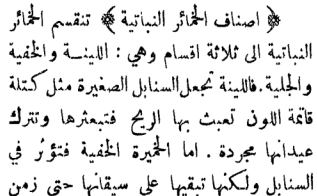 ﴿ اصناف الخمائر النباتية ﴾ تنقسم الخمائر
النباتية الى ثلاثة اقسام وهي : اللينة والخفية
والجلية . فاللينة تجعل السنابل الصغيرة مثل كتلة
قاتمة اللون تعبث بها الريح فتبعثرها وتترك
عيدانها مجردة . اما الخميرة الخفية فتؤثر في
السنابل ولكنها تبقيها على سيقانها حتى زمن